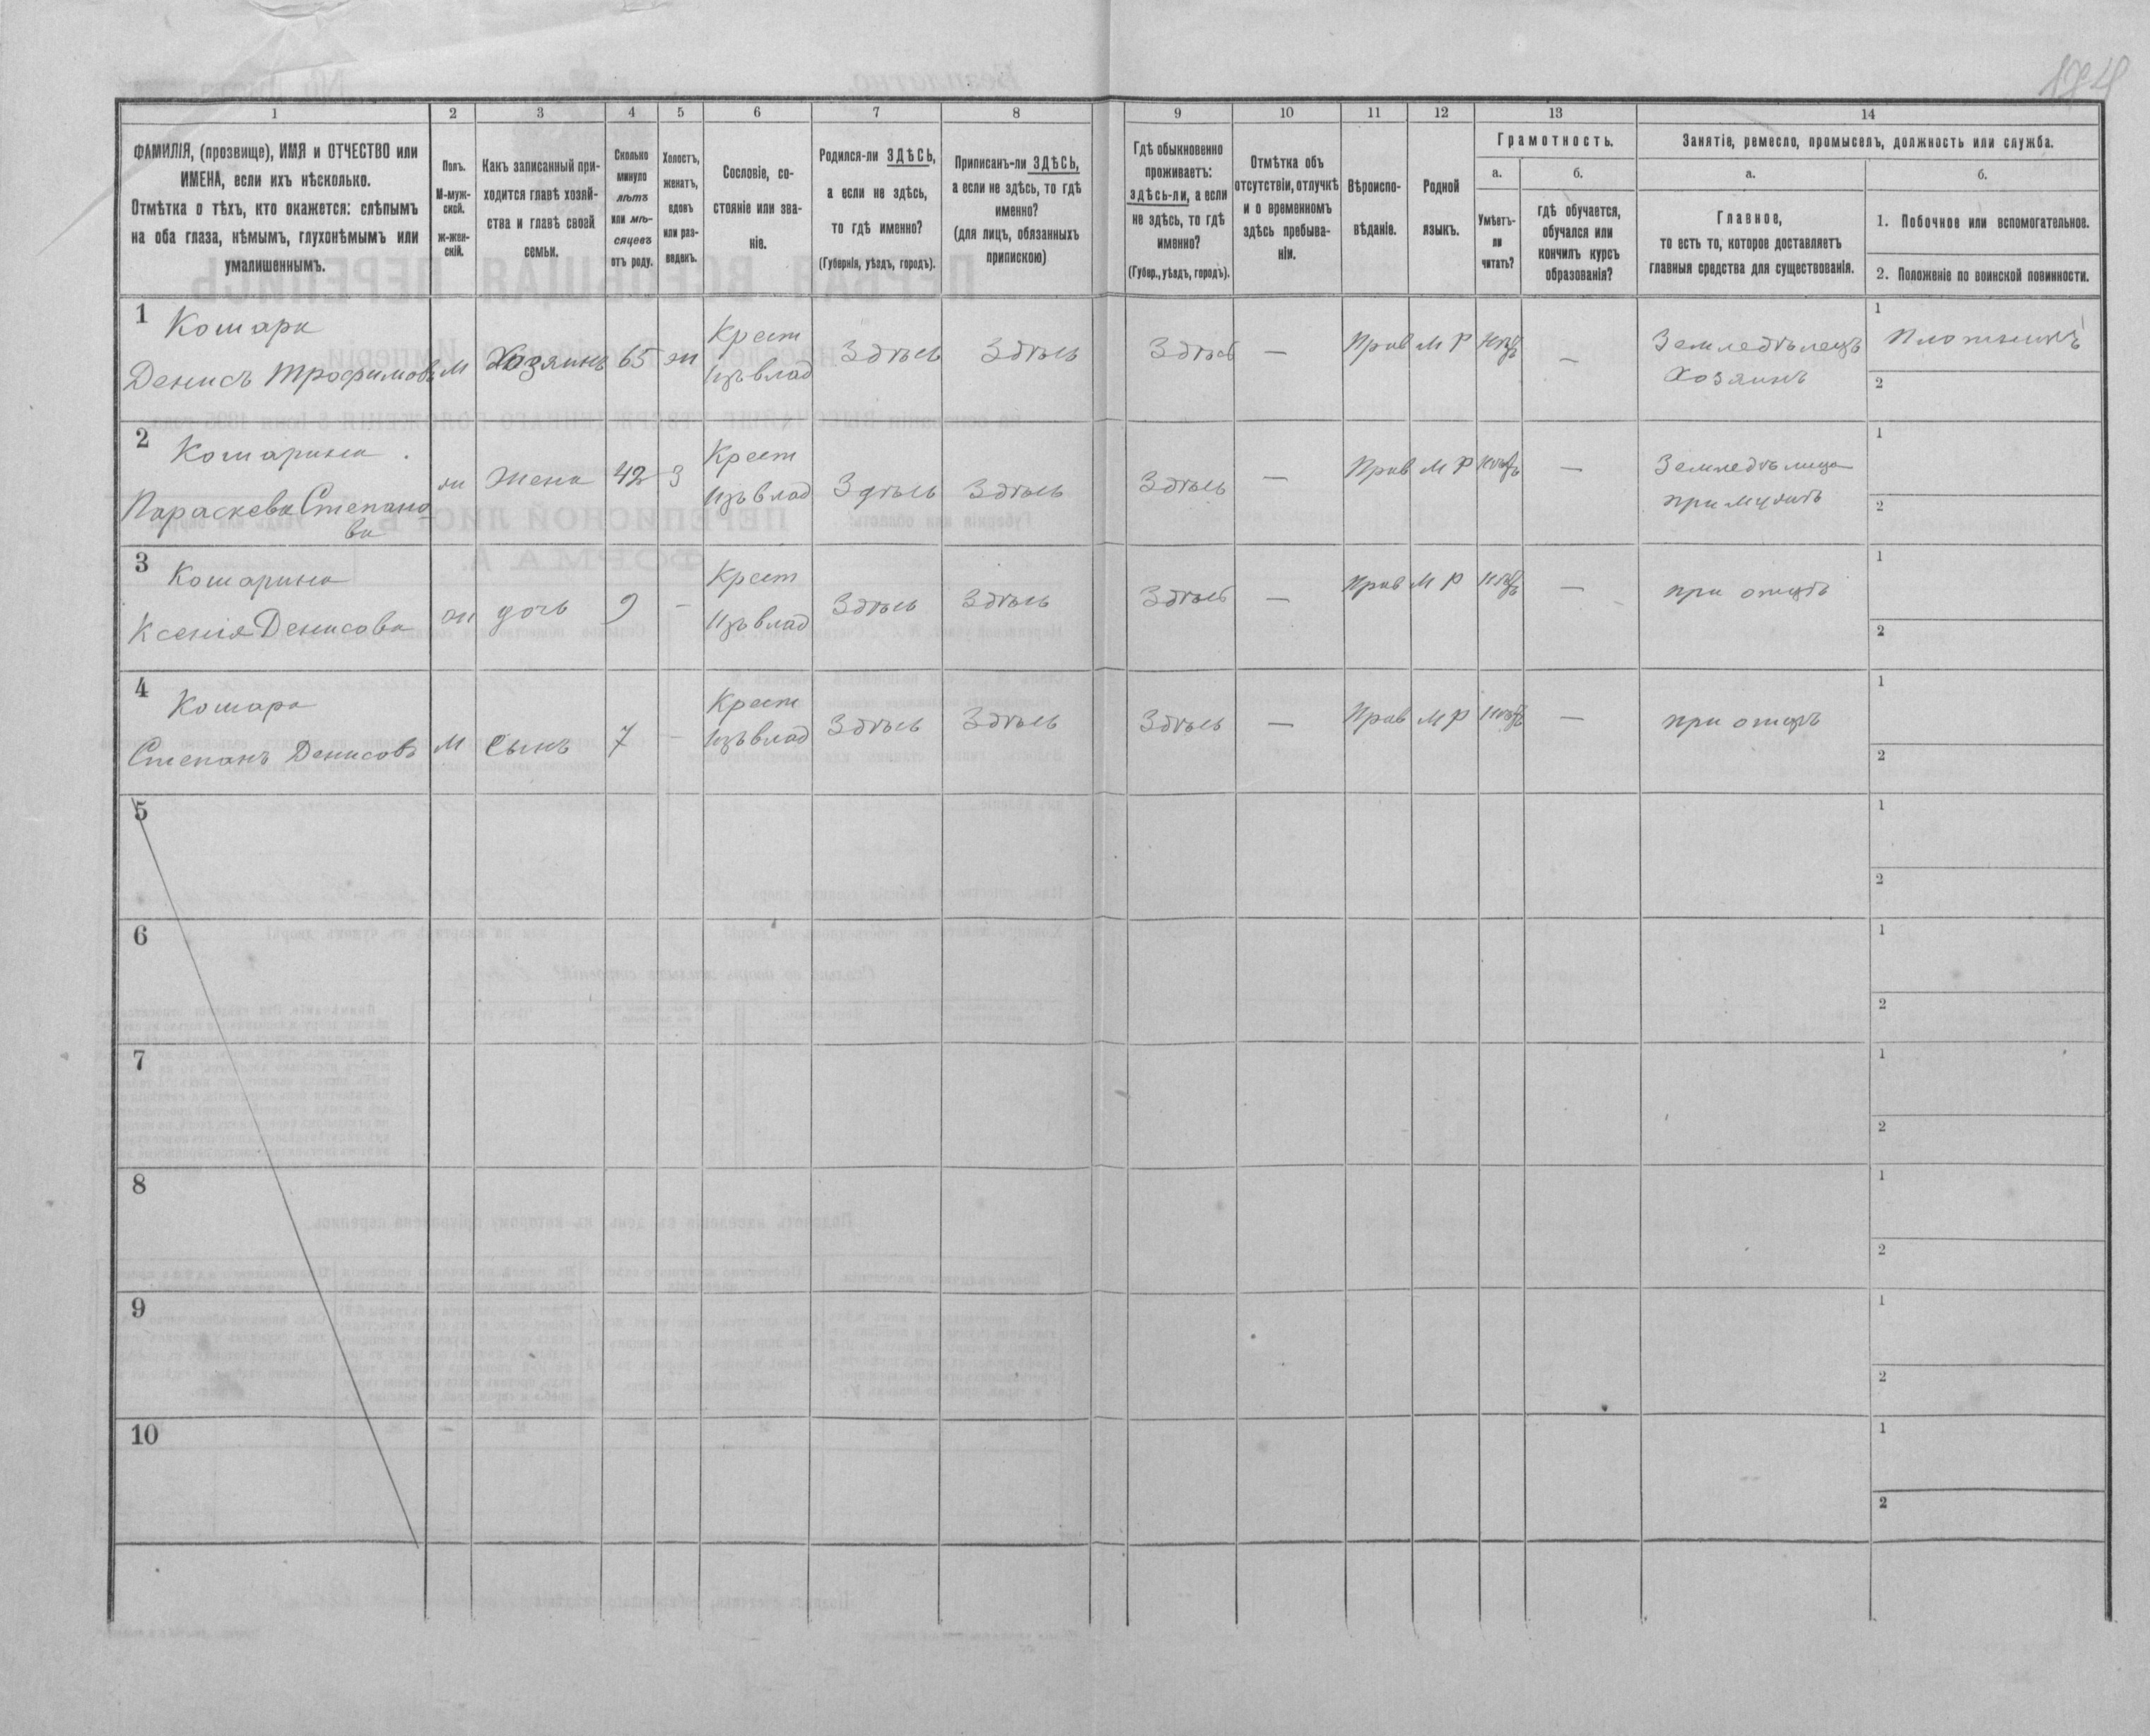 194
1
2
3
4
5
6
7
8
9
10
11
12
13
14
ФАМИЛІЯ, (прозвище), ИМЯ и ОТЧЕСТВО или
ИМЕНА, если ихъ нѣсколько.
Отмѣтка о тѣхъ, кто окажется: слѣпымъ
на оба глаза, нѣмымъ, глухонѣмымъ или
умалишеннымъ.
Полъ.
М-муж-
ской.
ж-жен-
скій.
Какъ записанный при-
ходится главѣ хозяй-
ства и главѣ своей
семьи.
Сколько
минуло
лѣтъ
или мѣ-
сяцевъ
отъ роду.
Холостъ,
женатъ,
вдовъ
или раз-
веденъ.
Сословіе, со-
стояніе или зва-
ніе.
Родился-ли ЗДѢСЬ,
а если не здѣсь,
то гдѣ именно?
(Губернія, уѣздъ, городъ).
Приписанъ-ли ЗДѢСЬ,
а если не здѣсь, то гдѣ
именно?
(для лицъ, обязанныхъ
припискою)
Гдѣ обыкновенно
проживаетъ:
здѣсь-ли, а если
не здѣсь, то гдѣ
именно?
(Губер., уѣздъ, городъ).
Отмѣтка объ
отсутствіи, отлучкѣ
и о временномъ
здѣсь пребыва-
ніи.
Вѣроиспо-
вѣданіе.
Родной
языкъ.
Грамотность.
а.
Умѣетъ-
ли
читать?
б.
гдѣ обучается,
обучался или
кончилъ курсъ
образованія?
Занятіе, ремесло, промыселъ, должность или служба.
а.
Главное,
то есть то, которое доставляетъ
главныя средства для существованія.
б.
1. Побочное или вспомогательное.
2. Положеніе по воинской повинности.
1
Кошара
Денисъ Трофимовъ
м
Хозяинъ
65
ж
Крест
изъ влад
Здѣсь
Здѣсь
Здѣсь
—
Прав
М Р
нѣтъ
—
Земледѣлецъ
Хозяинъ
1
Плотникъ
2
2
Кошарина
Параскева Степано
ва
ж
Жена
42
З
Крест
изъ влад
Здѣсь
Здѣсь
Здѣсь
—
Прав
М Р
нѣтъ
—
Земледѣлица
при мужѣ
1
2
3
Кошарина
Ксенія Денисова
ж
дочь
9
-
Крест
изъ влад
Здѣсь
Здѣсь
Здѣсь
—
Прав
М Р
нѣтъ
—
при отцѣ
1
2
4
Кошара
Степанъ Денисовъ
м
Сынъ
7
-
Крест
изъ влад
Здѣсь
Здѣсь
Здѣсь
—
Прав
М Р
нѣтъ
—
при отцѣ
1
2
5
1
2
6
1
2
7
1
2
8
1
2
9
1
2
10
1
2